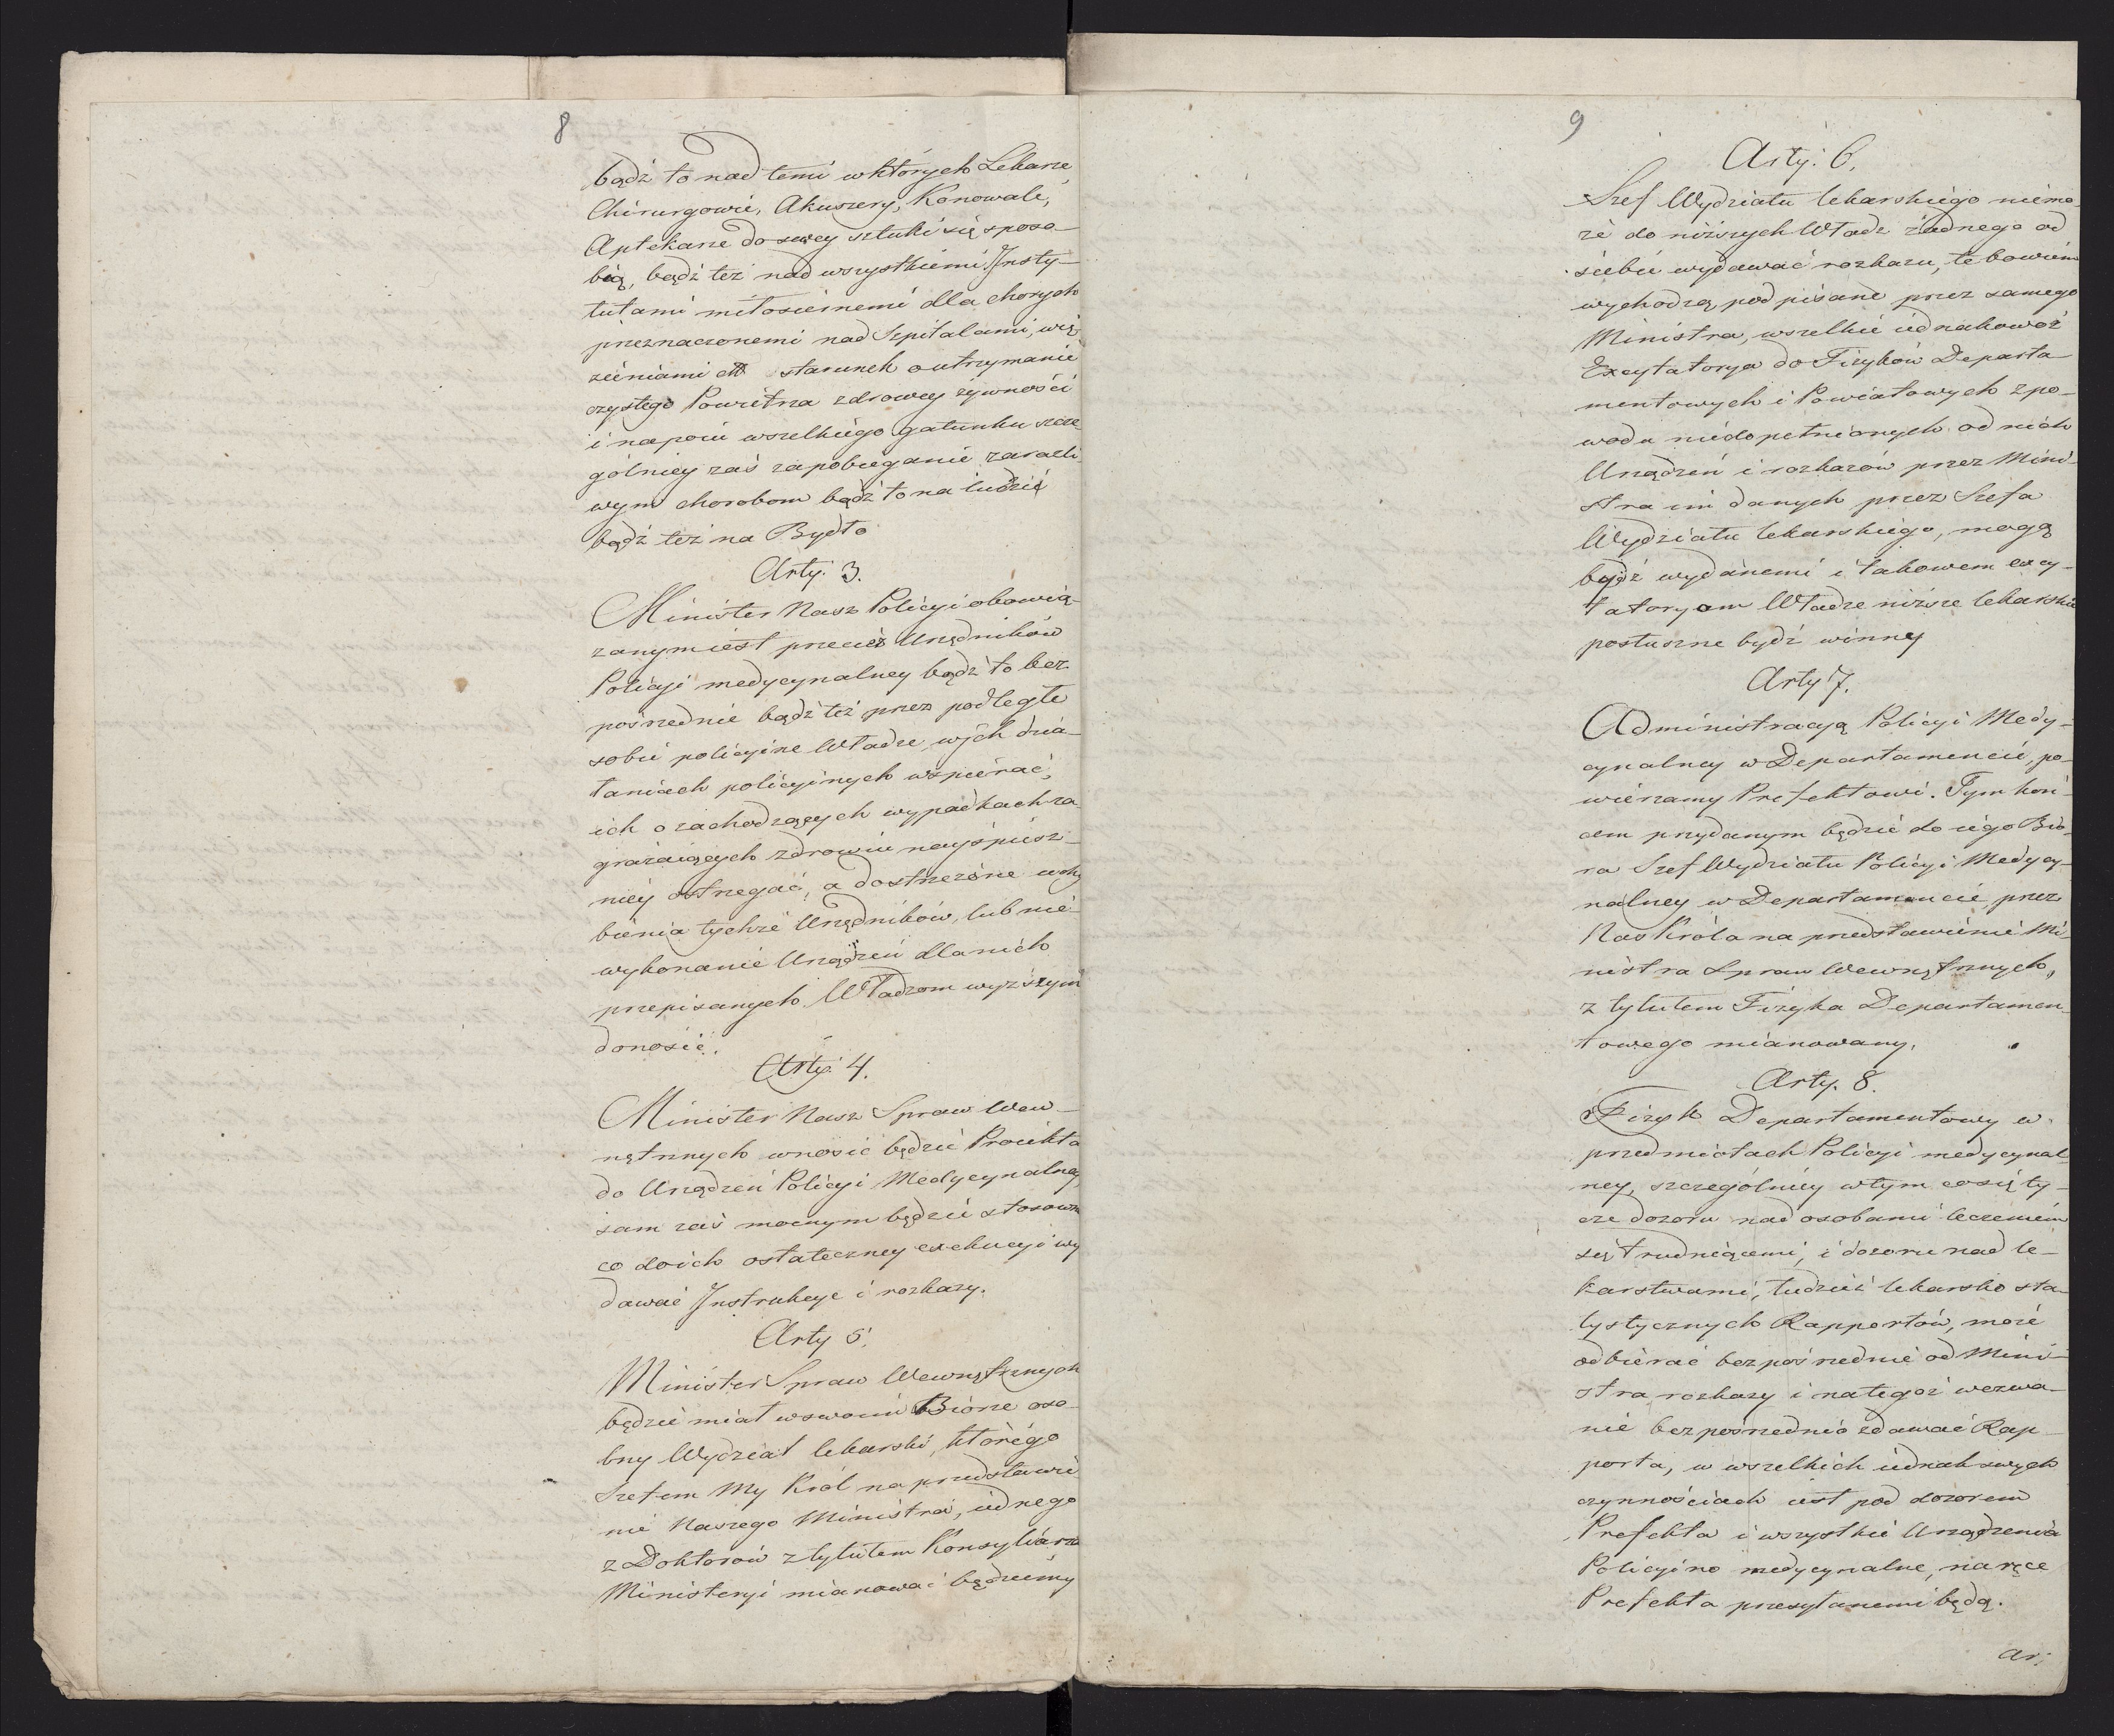 8
bądź to nad temi w których Lekarze
Chirurgowie, Akuszery, Konowale,
Aptekarze do swey sztuki się sposo-
bią, bądź też nad wszystkiemi Insty-
tutami miłosiernemi dla chorych
przeznaczonemi nad Szpitalami, wię-
zieniami ett starunek o utrzymanie
czystego Powietrza zdrowey żywności
i napoiu wszelkiego gatunku szcze
gólniey zaś zapobieganie zaraźli
wym chorobom bądź to na ludzie
bądź też na Bydło
Arty. 3.
Minister Nasz Policyi obowią-
zanym iest przecież Urzędników
Policyi medycynalney bądź to bez
pośrednie bądź też przez podległe
sobie policyine Władze, w ich dzia-
łaniach policyinych wspierać,
ich o zachodzących wypadkach za
grażaiących zdrowiu nayśpiesz-
niey ostrzegać, a dostrzeżone uchy
bienia tychże Urzędników, lub nie-
wykonanie Urządzeń dla nich
przepisanych Władzom wyższym
donosić.
Arty. 4.
Minister Nasz Spraw Wew-
nętrznych wnosić będzie Proiekta
do Urządzeń Policyi Medycynalney
sam zaś mocnym będzie stosown
co do ich ostateczney exekucyi wy
dawać Instrukcye i rozkazy.
Arty 5.
Minister Spraw Wewnętrznych
będzie miał w swoim Biórze oso-
bny Wydział lekarski, którego
Szefem My Król na przedstawie
nie Naszego Ministra, iednego
z Doktorów z tytułem Konsyliarza
Ministeryi mianować będziemy
9
Arty. 6.
Szef Wydziału lekarskiego niemo-
że do niższych Władz żadnego od
siebie wydawać rozkazu, te bowiem
wychodzą podpisane przez samego
Ministra, wszelkie iednakowoż
Excytatorya do Fizyków Departa-
mentowych i Powiatowych z po-
wodu niedopełnionych od nich
Urządzeń i rozkazów przez Mini-
stra im danych przez Szefa
Wydziału lekarskiego, mogą
bydź wydanemi i takowem excy-
tatoryom Władze niższe lekarskie
posłuszne bydź winny
Arty 7.
Administracyą Policyi Medy-
cynalney w Departamencie, po-
wierzamy Prefektowi. Tym koń-
cem przydanym będzie do iego Bió-
ra Szef Wydziału Policyi Medycy-
nalney w Departamencie, przez
Nas Króla na przedstawienie Mi-
nistra Spraw Wewnętrznych,
z tytułem Fizyka Departamen-
towego mianowany.
Arty. 8.
Fizyk Departamentowy w
przedmiotach Policyi medycynal-
ney, szczególniey w tym co się ty-
cze dozoru nad osobami leczeniem
się trudniącemi, i dozoru nad le-
karstwami, tudzież lekarsko sta-
tystycznych Rapportów, może
odbierać bezpośrednie od Mini-
stra rozkazy i na tegoż wezwa-
nie bezpośrednio zdawać Rap-
porta, w wszelkich iednak swych
czynnościach iest pod dozorem
Prefekta i wszystkie Urządzenia
Policyino medycynalne, na ręce
Prefekta przesyłanemi będą.
Ar: